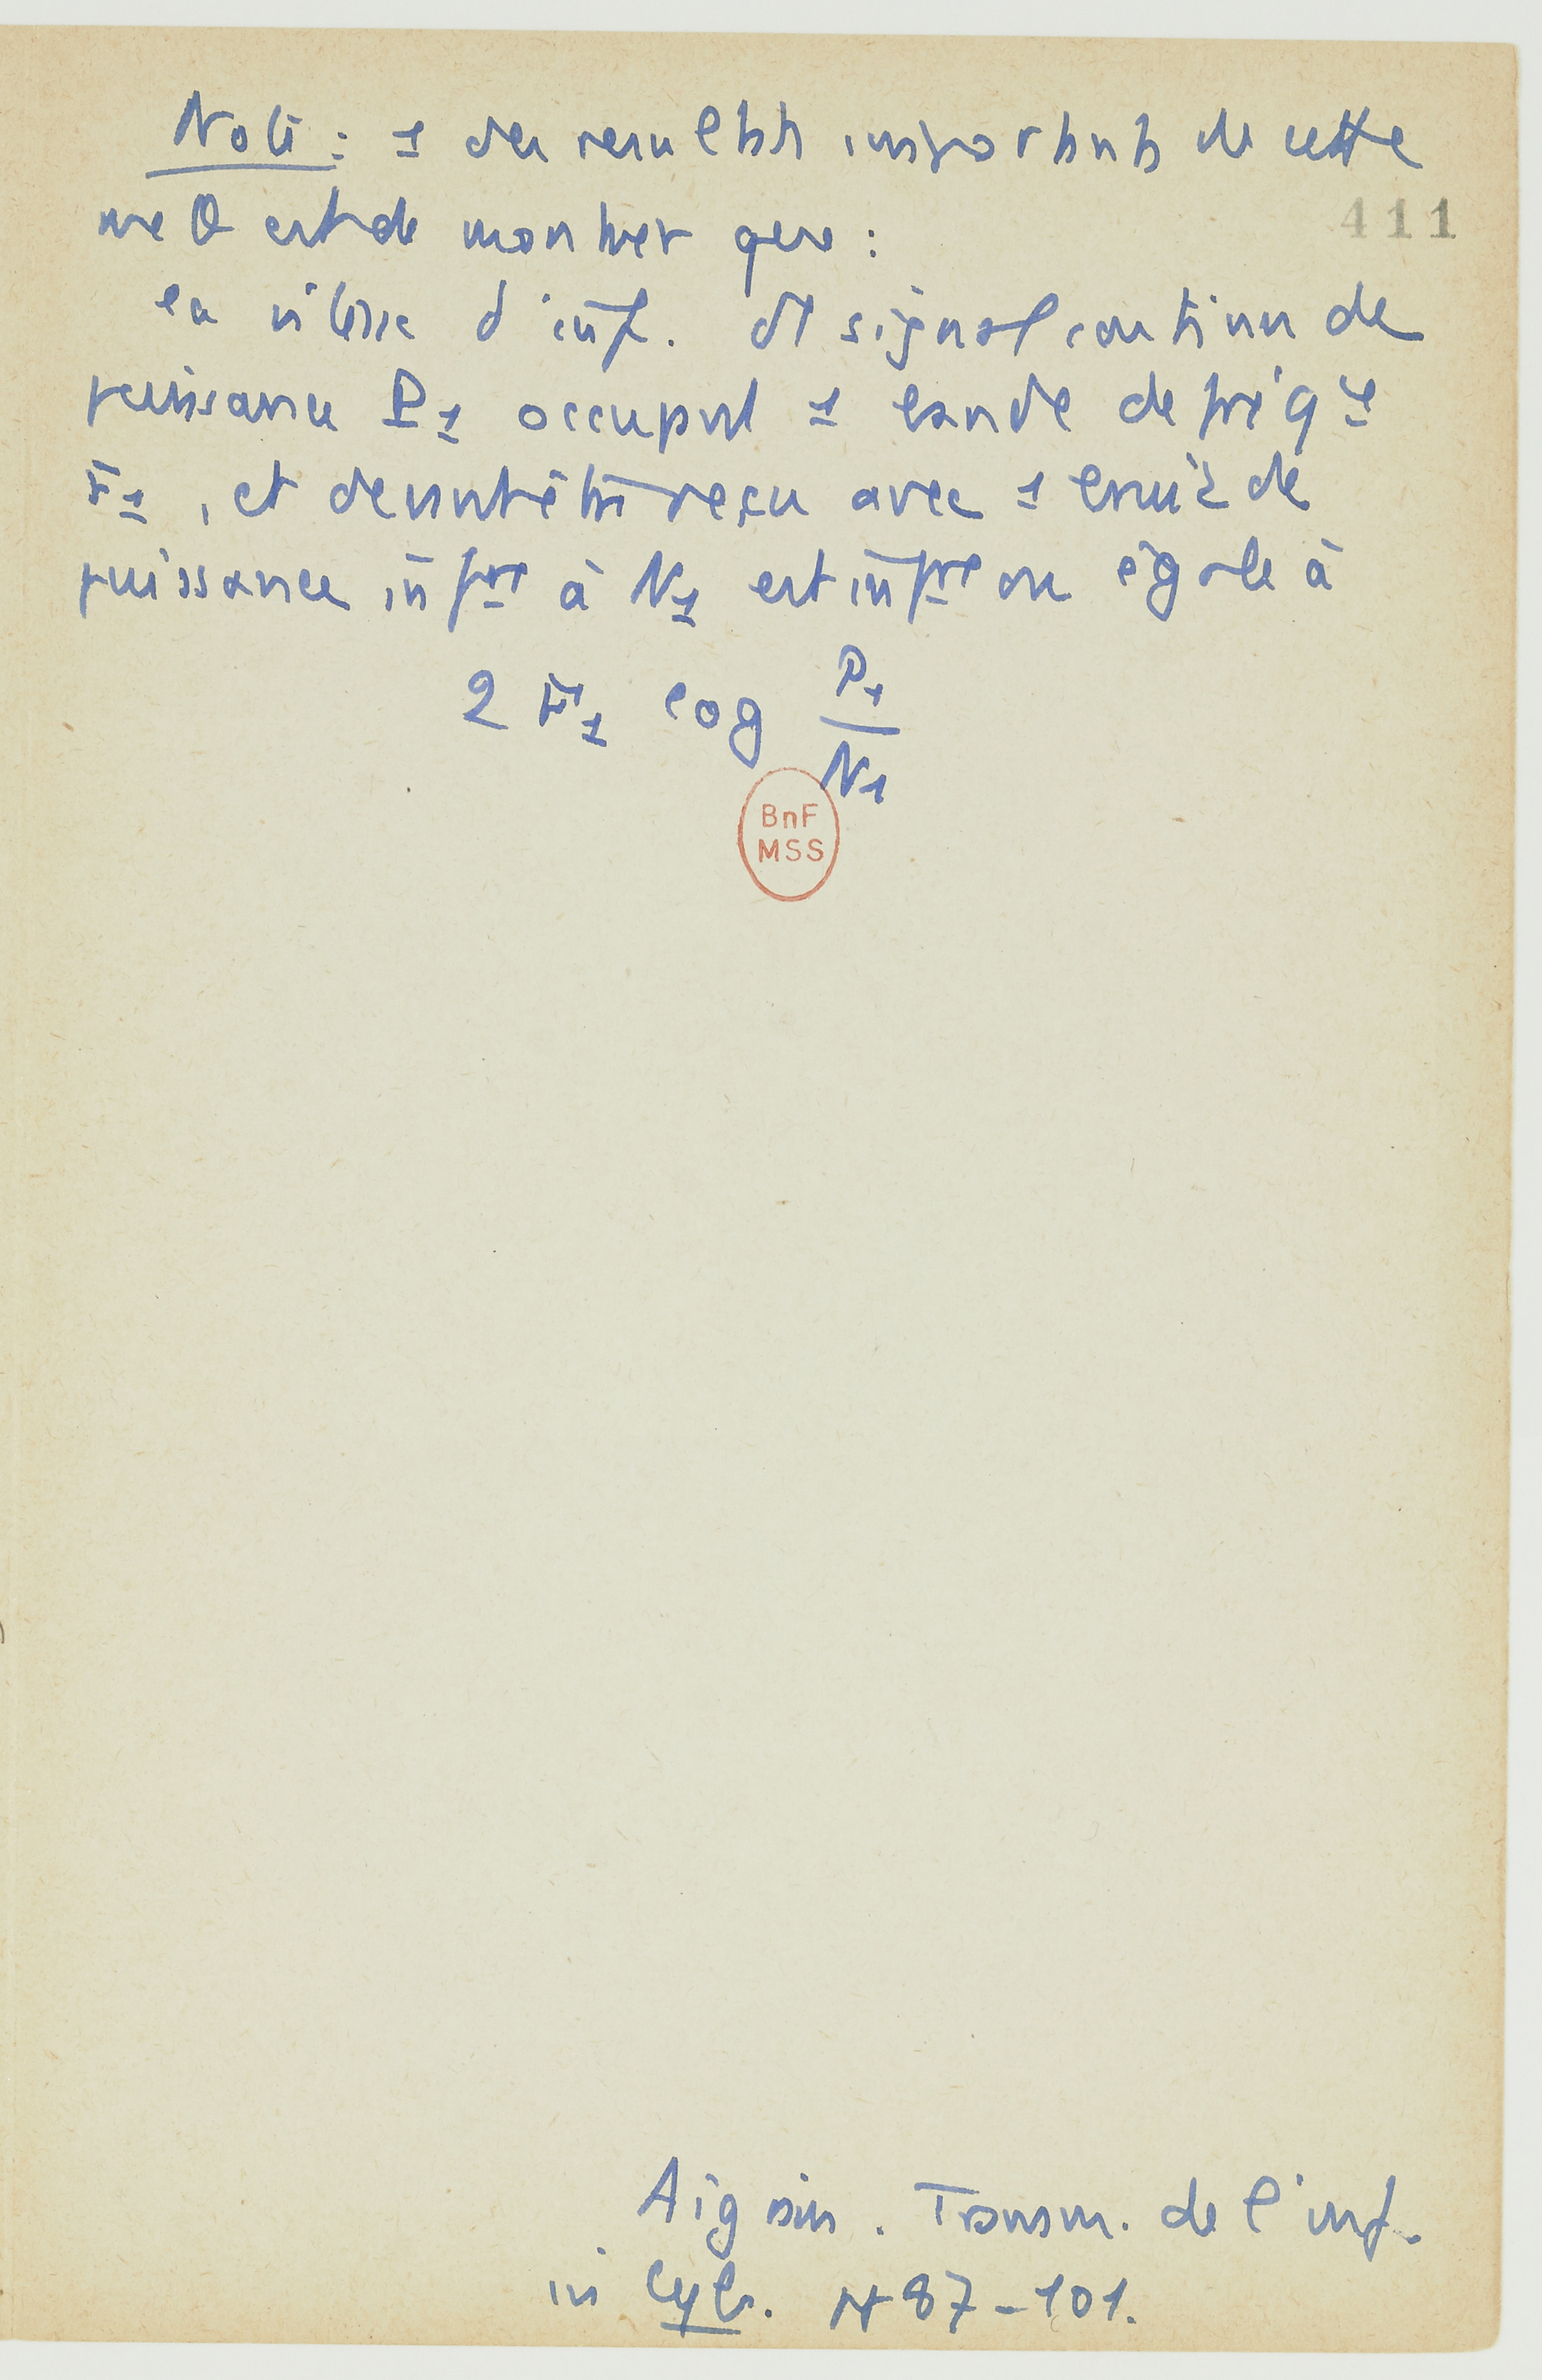 Note : 1 des resultats importants de cette
411
me θ est de montrer que :
la vitesse d'inf. d'1 signal continu de
puissance P1 occupant 1 bande de fréqce
F1, et devant être reçu avec 1 bruit de
puissance infre à N1 est infre ou égale à
2 F1 log P1/N1
BnF
MSS
Aigrain. Transm. de l'inf.
in Cyb. 87-101.